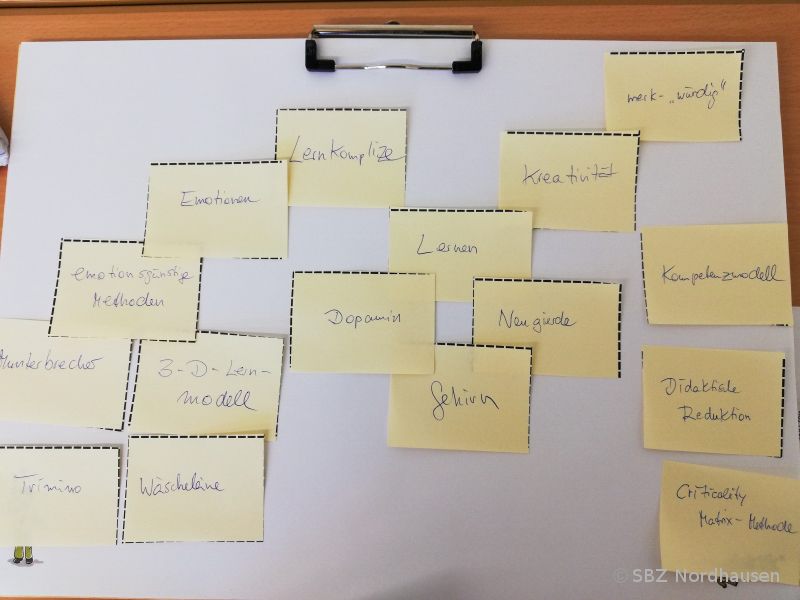 merk- „würdig"
Lernkomplize
Kreativität
Emotionen
Lernen
Kompetenzmodell
emotionsgünstige
Methoden
Dopamin
Neugierde
Munterbrecher
3-D-Lern-
modell
Gehirn
Didaktische
Reduktion
Trimino
Wäscheleine
Criticality
Matrix-Methode
© SBZ Nordhausen